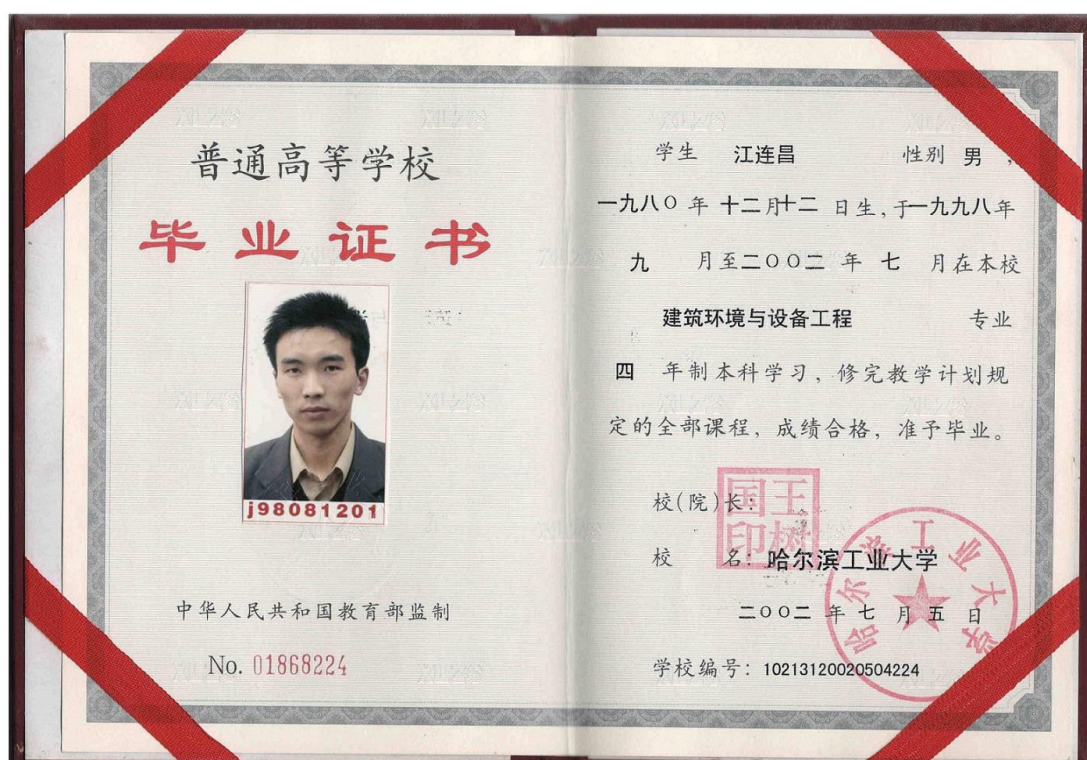 普通高等学校
毕业证书
j98081201
中华人民共和国教育部监制
No. 01868224
学生 江连昌 性别 男,
一九八〇 年 十二月十二 日生,于一九九八年
九 月至二〇〇二 年 七 月在本校
建筑环境与设备工程 专业
四 年制本科学习,修完教学计划规
定的全部课程,成绩合格,准予毕业。
校(院)长:
王树国印
校 名: 哈尔滨工业大学
哈尔滨工业大学
二〇〇二 年 七 月 五 日
学校编号: 10213120020504224